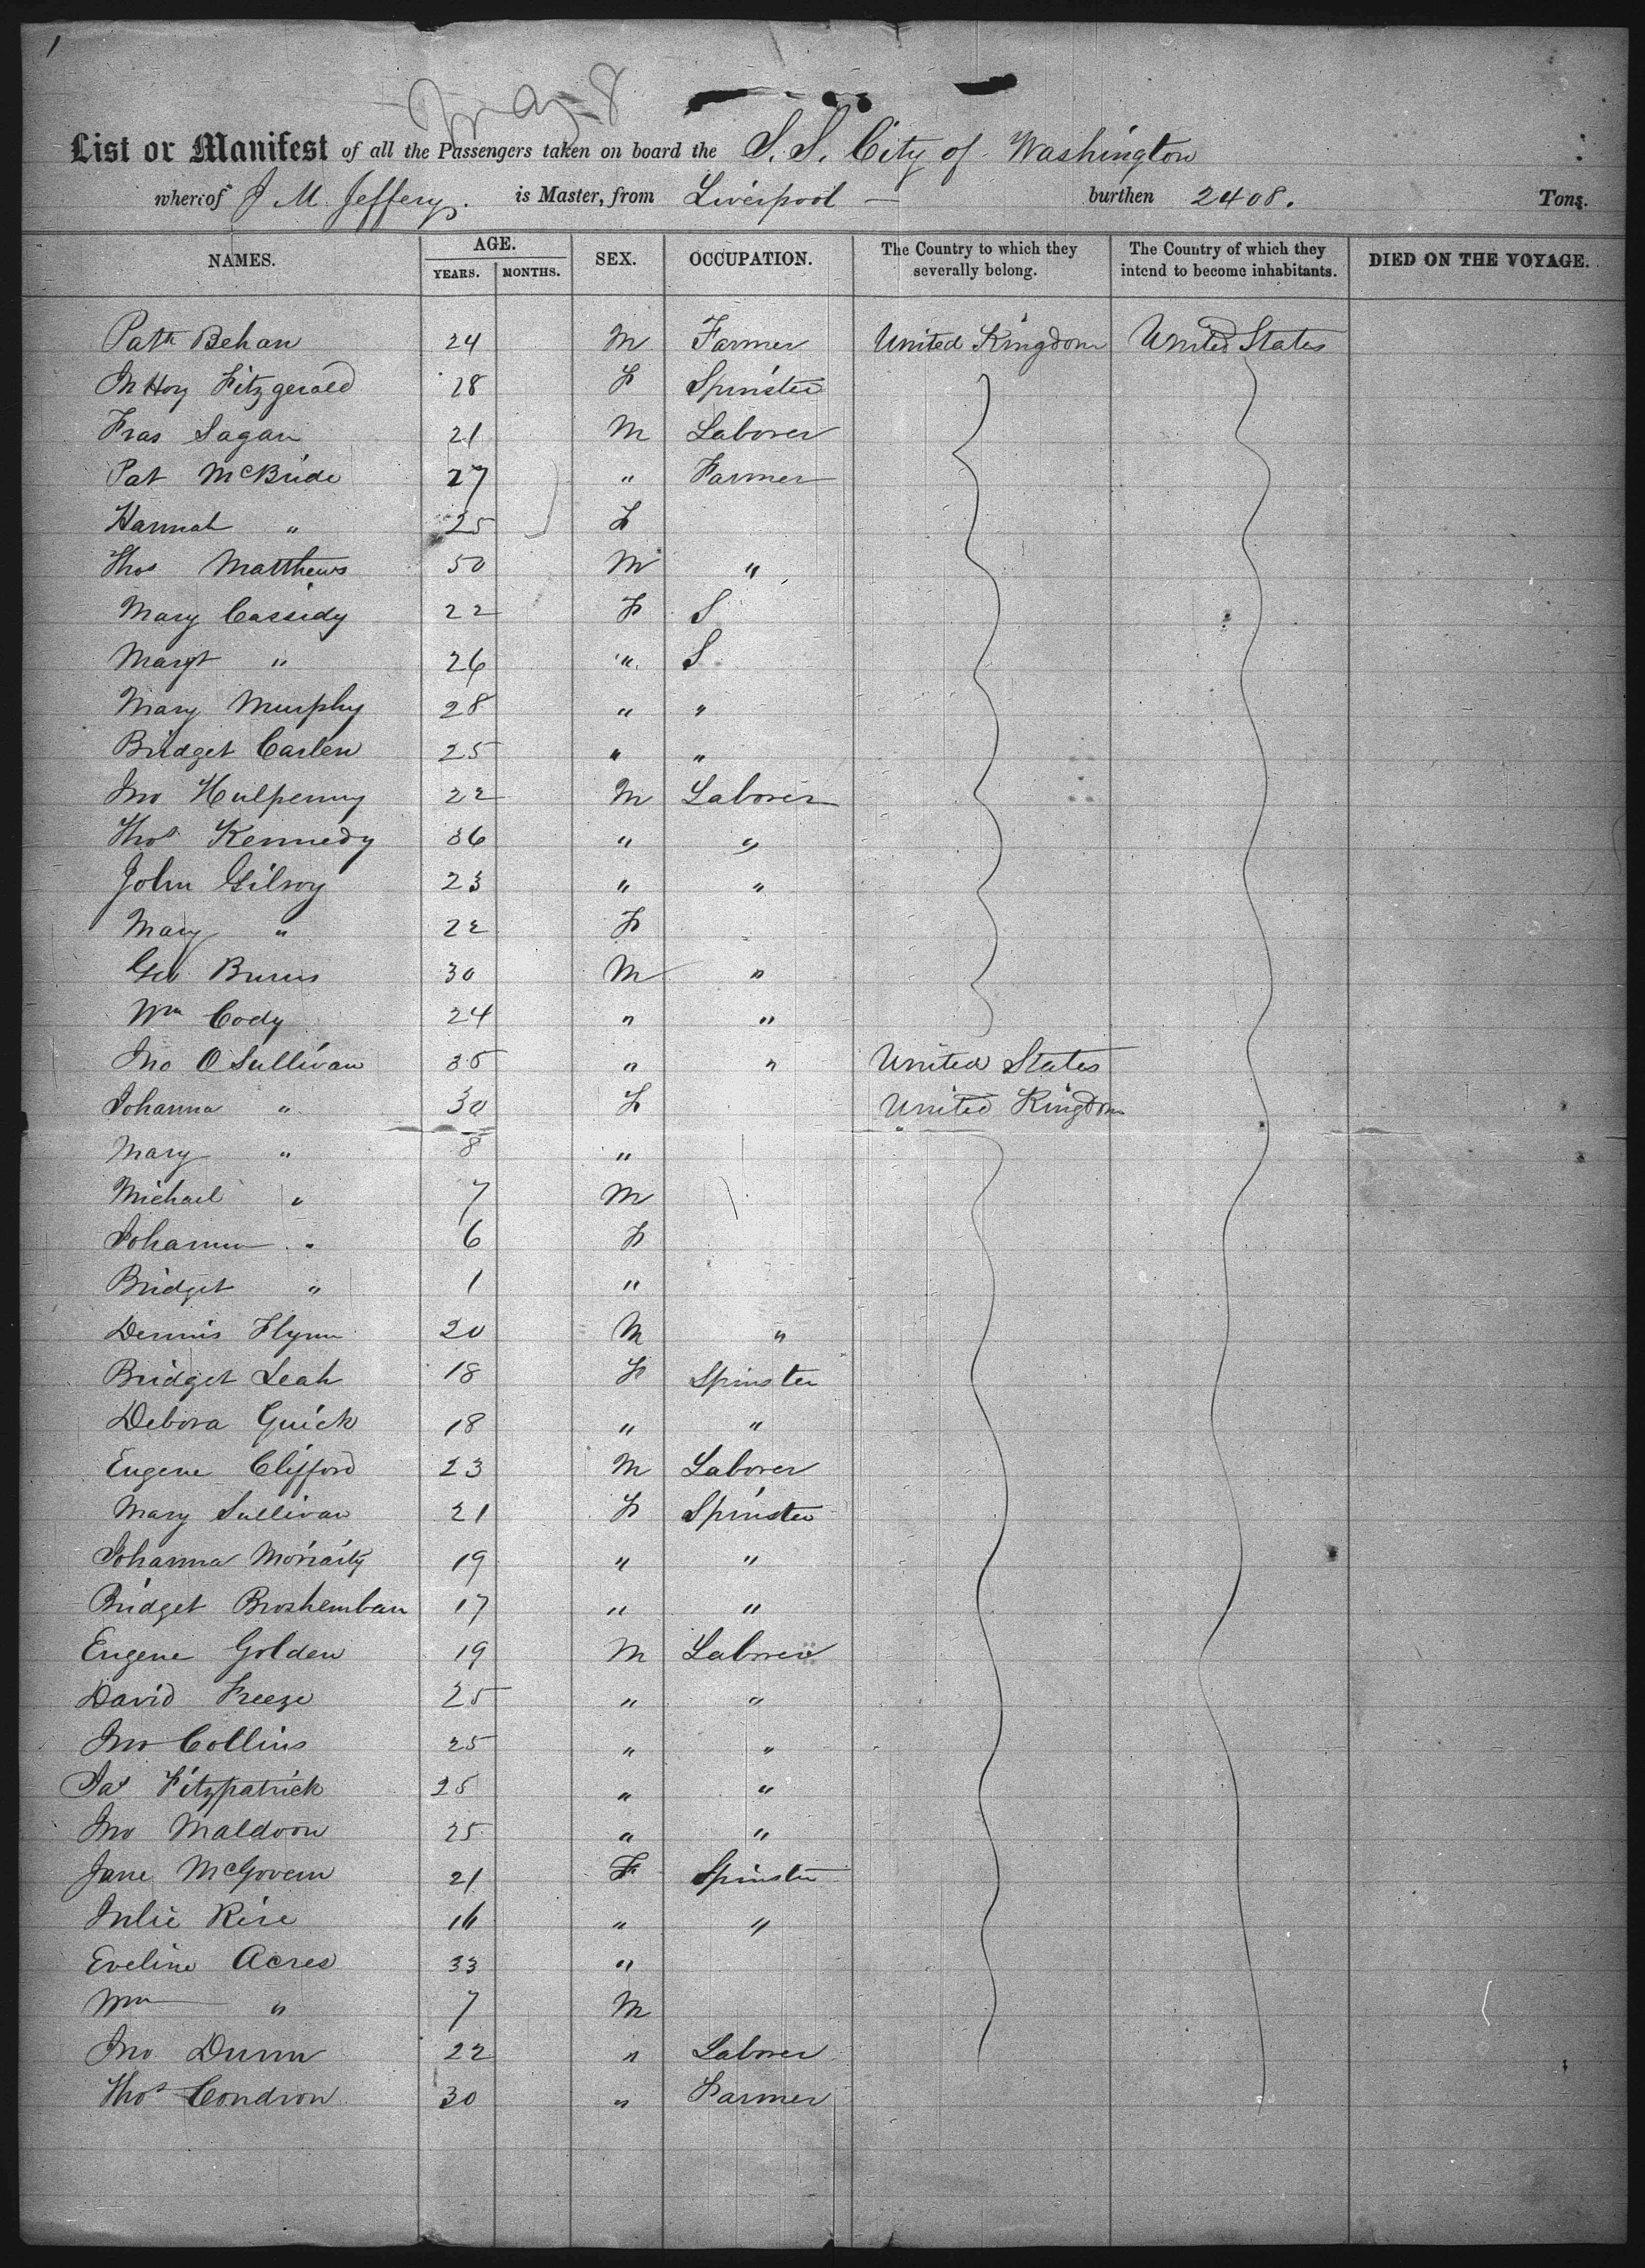 1
May 8
List or Manifest of all the Passengers taken on board the S. S. City of Washington
whereof J M. Jeffery. is Master, from Liverpool — burthen 2408. Tons.
NAMES. AGE. YEARS. MONTHS. SEX. OCCUPATION. The Country to which they severally belong. The Country of which they intend to become inhabitants. DIED ON THE VOYAGE.
Patk Behan 24 M Farmer United Kingdom United States
Fitzgerald 28 F Spinster
Fras Sagan 21 M Laborer
Pat McBride 27 " Farmer
Hannah " 25 F
Thos Matthews 50 M "
Mary Cassidy 22 F S
Margt " 26 " S
Mary Murphy 28 " "
Bridget Carlen 25 " "
Jno Hulpenny 22 M Laborer
Thos Kennedy 36 " "
John Gilroy 23 " "
Mary " 22 F
Geo Burns 30 M "
Wm Cody 24 " "
Jno O Sullivan 35 " " United States
Johanna " 30 F United Kingdom
Mary " 8 "
Michael " 7 M
Johanna " 6 F
Bridget " 1 "
Dennis Flynn 20 M "
Bridget Leah 18 F Spinster
Debora Quick 18 " "
Eugene Clifford 23 M Laborer
Mary Sullivan 21 F Spinster
Johanna Moriarty 19 " "
Bridget 17 " "
Eugene Golden 19 M Laborer
David Freeze 25 " "
Jno Collins 25 " "
Jas Fitzpatrick 25 " "
Jno Maldoon 25 " "
Jane McGovern 21 F Spinster
Julie Rice 16 " "
Eveline Acres 33 "
Wm " 7 M
Jno Dunn 22 " Laborer
Thos Condron 30 " Farmer